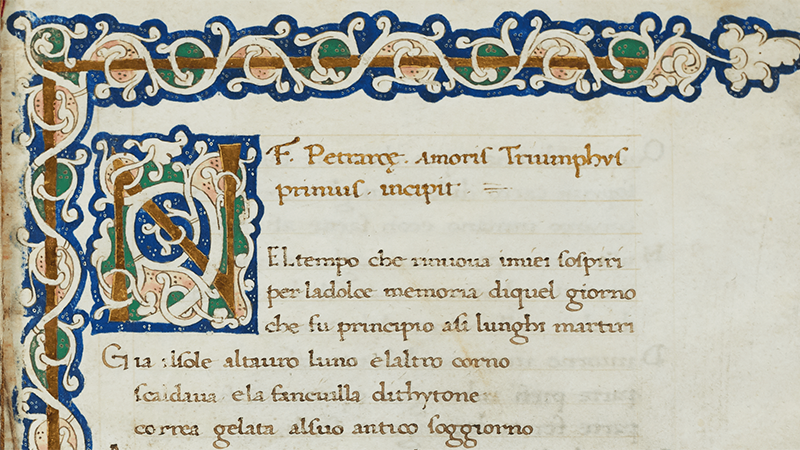 F. Petrarcę. Amoris Triumphus
primus. incipit
NEL tempo che rinuova imiei sospiri
per ladolce memoria diquel giorno
che fu principio asi lunghi martiri
Gia ilsole altauro luno elaltro corno
scaldaua. ela fanciulla dithytone
correa gelata alsuo antico soggiorno